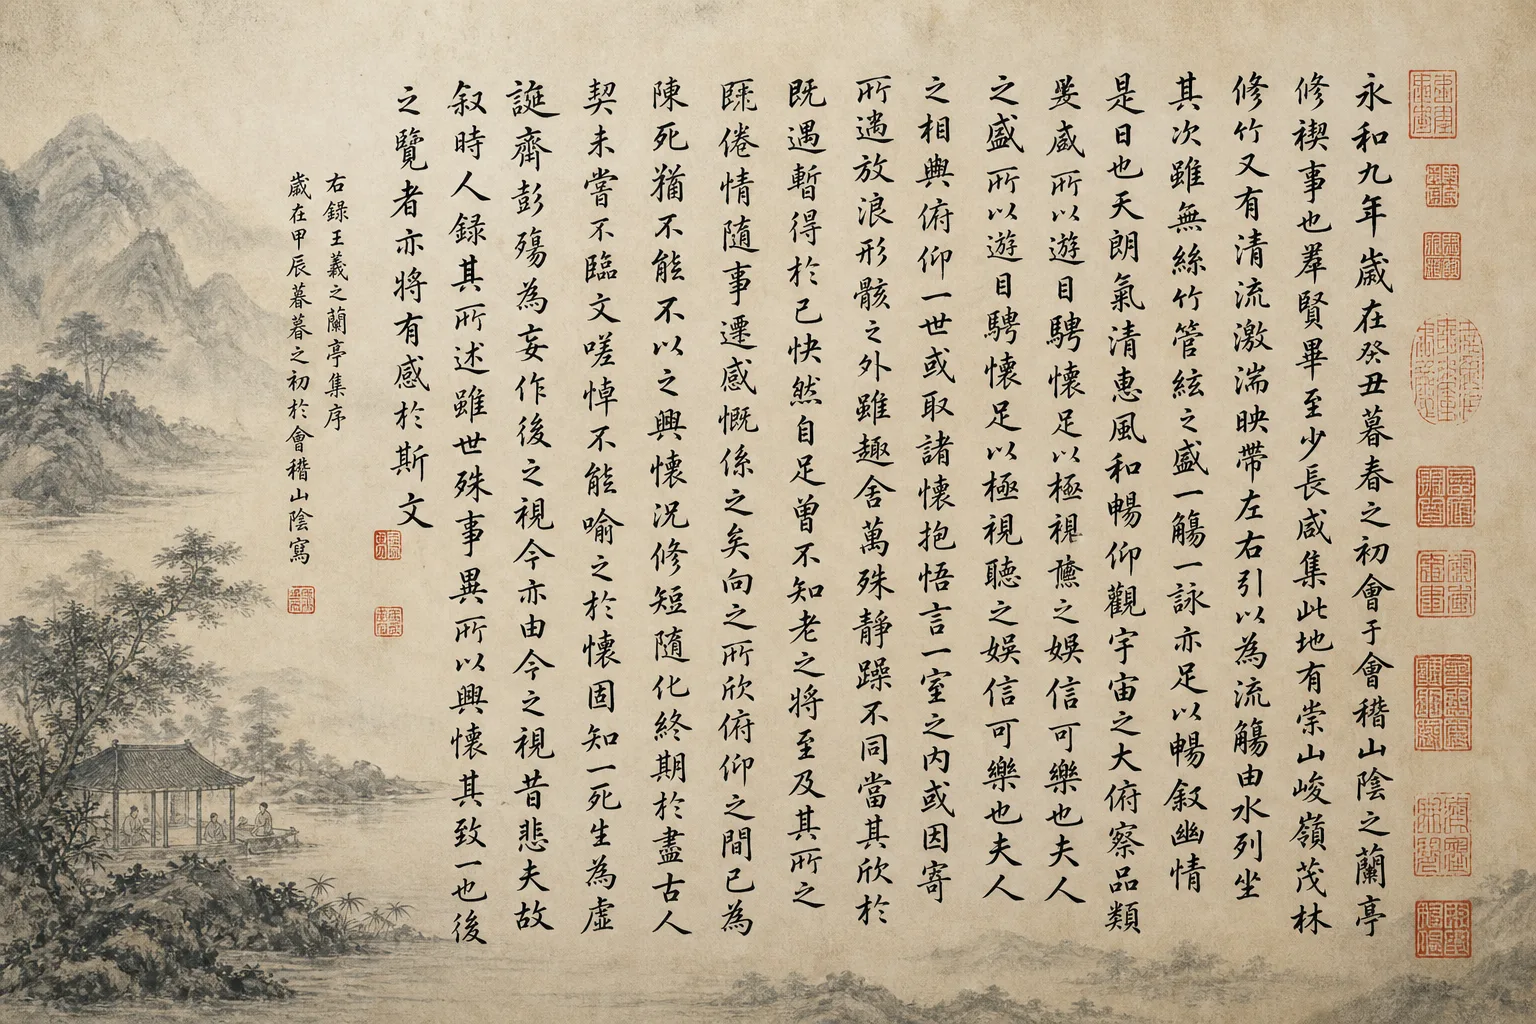 永和九年歲在癸丑暮春之初會于會稽山陰之蘭亭
修禊事也羣賢畢至少長咸集此地有崇山峻嶺茂林
修竹又有清流激湍映帶左右引以為流觴由水列坐
其次雖無絲竹管絃之盛一觴一詠亦足以暢叙幽情
是日也天朗氣清惠風和暢仰觀宇宙之大俯察品類
盛所以遊目騁懷足以極視之娛信可樂也夫人
之盛所以遊目騁懷足以極視聽之娛信可樂也夫人
之相興俯仰一世或取諸懷抱悟言一室之内或因寄
所放浪形骸之外雖趣舍萬殊靜躁不同當其欣於
既遇暫得於己快然自足曾不知老之將至及其所之
倦情隨事遷感慨係之矣向之所欣俯仰之間已為
陳死猶不能不以之興懷況修短隨化終期於盡古人
契未嘗不臨文嗟悼不能喻之於懷固知一死生為虛
誕齊彭殤為妄作後之視今亦由今之視昔悲夫故
叙時人録其所述雖世殊事異所以興懷其致一也後
之覽者亦將有感於斯文
右録王義之蘭亭集序
歲在甲辰暮暮之初於會稽山陰寫